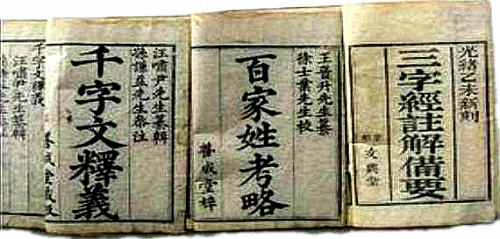 光緒乙未新刻
三字經註解備要
文興堂
王晉升先生纂
徐士業先生校
百家姓考略
汪嘯尹先生纂輯
孫謙益先生參注
千字文釋義
千字文釋義